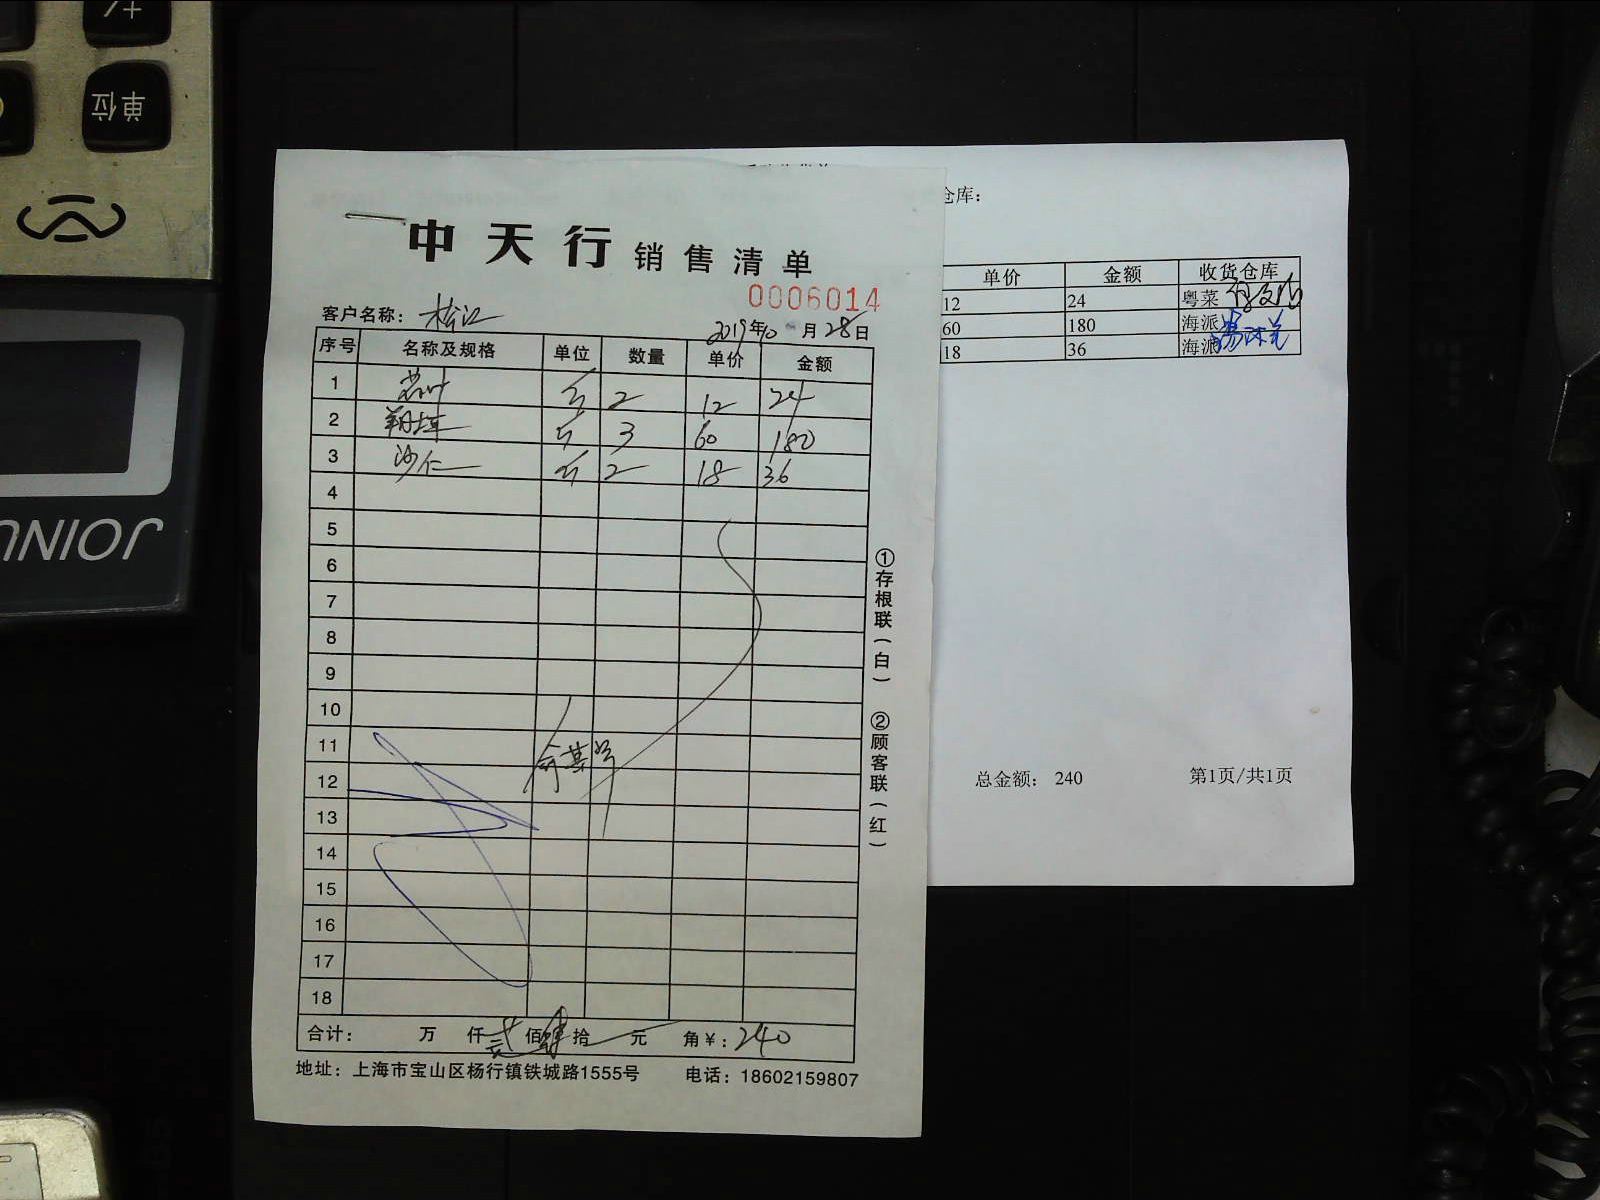 +/-
单位
JOINU
中天行 销售清单
0006014
客户名称: 松江
2019年10月28日
序号 名称及规格 单位 数量 单价 金额
1 2 12 24
2 3 60 180
3 沙仁 2 18 36
4
5
6
7
8
9
10
11
12
13
14
15
16
17
18
合计: 万 仟 贰 佰 肆 拾 元 角 ¥: 240
地址: 上海市宝山区杨行镇铁城路1555号 电话: 18602159807
①存根联(白) ②顾客联(红)
仓库:
单价 金额 收货仓库
12 24 粤菜
60 180 海派
18 36 海派
总金额: 240 第1页/共1页